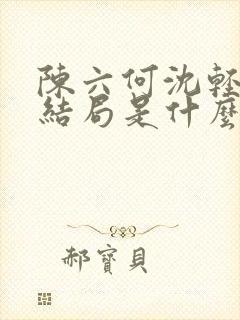 陳六何沈輕
結局是什麼
郝寶貝